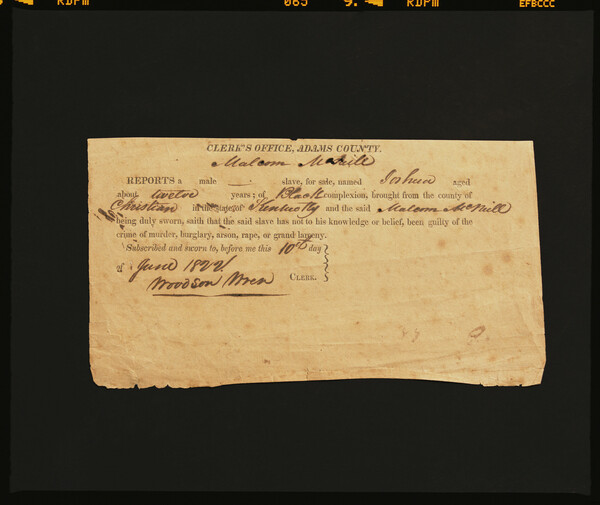 RDPm 065 9. RDPM EFBCCC
CLERK'S OFFICE, ADAMS COUNTY.
Malcom McNeill
REPORTS a male slave, for sale, named Joshua aged
about twelve years; of Black complexion, brought from the county of
Christian in the state of Kentucky and the said Malcom McNeill
being duly sworn, saith that the said slave has not to his knowledge or belief, been guilty of the
crime of murder, burglary, arson, rape, or grand larceny.
Subscribed and sworn to, before me this 10th day
of June 1822
Woodson Wren CLERK.